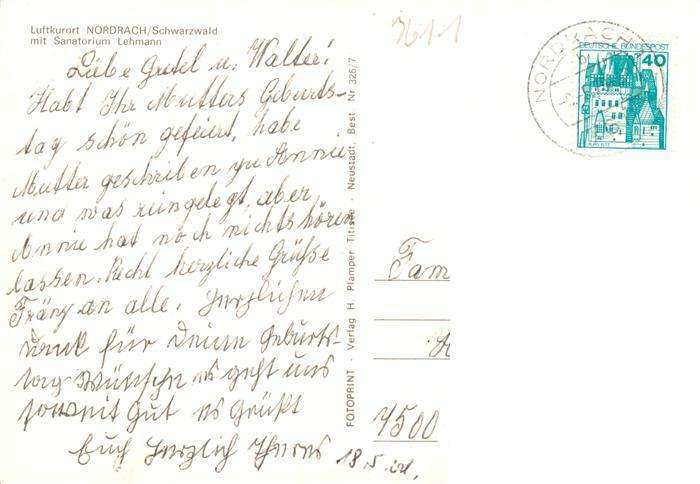 Luftkurort NORDRACH/Schwarzwald
mit Sanatorium Lehmann
Liebe Gretel u. Walter!
Habt Ihr Mutters Geburts-
tag schön gefeiert, habe
Mutter geschrieben zu Annie
und was reingelegt, aber
Annie hat noch nichts hören
lassen. Recht herzliche Grüsse
an alle. Herzlichen
Dank für Deine Geburts-
tag Wünsche es geht uns
soweit Gut es Grüßt
Euch Herzlich
FOTOPRINT - Verlag H. Plamper Titisee - Neustadt, Best Nr 326/7
3611
NORDRACH
DEUTSCHE BUNDESPOST
40
BURG ELTZ
Fam
4500